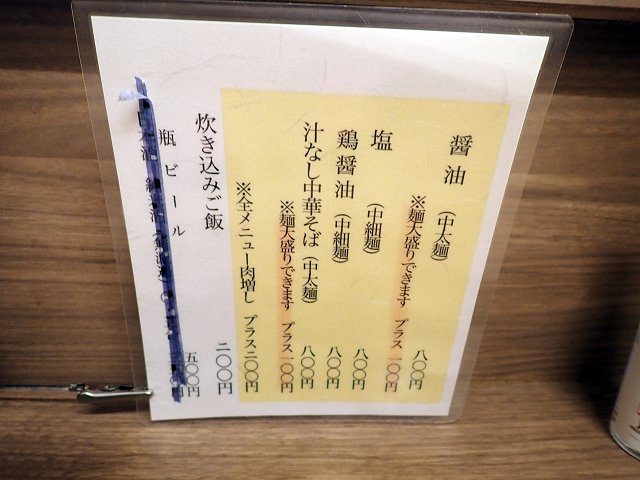 醤油（中太麺） 八〇〇円
※麺大盛りできます プラス一〇〇円
塩（中細麺） 八〇〇円
鶏醤油（中細麺） 八〇〇円
汁なし中華そば（中太麺） 八〇〇円
※麺大盛りできます プラス一〇〇円
※全メニュー肉増し プラス二〇〇円
炊き込みご飯 二〇〇円
瓶ビール 五〇〇円